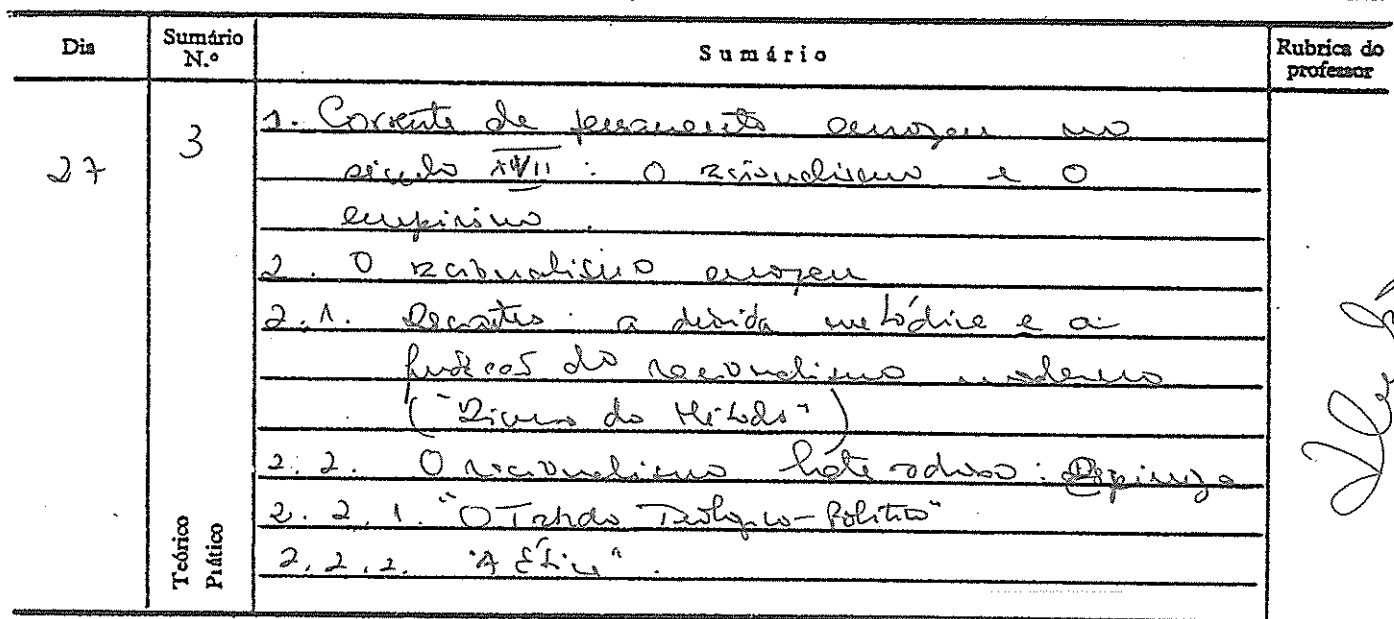 Dia
Sumário N.º
Sumário
Rubrica do professor
27
3
1. Corrente de pensamento europeu no
século XVII : O racionalismo e o
empirismo.
2. O racionalismo europeu
2.1. Descartes: a dúvida metódica e a
fundação do racionalismo moderno
("Discurso do Método")
2.2. O racionalismo heterodoxo: Espinoza
2.2.1. "O Tratado Teológico-Político"
2.2.2. "A Ética".
Teórico
Prático